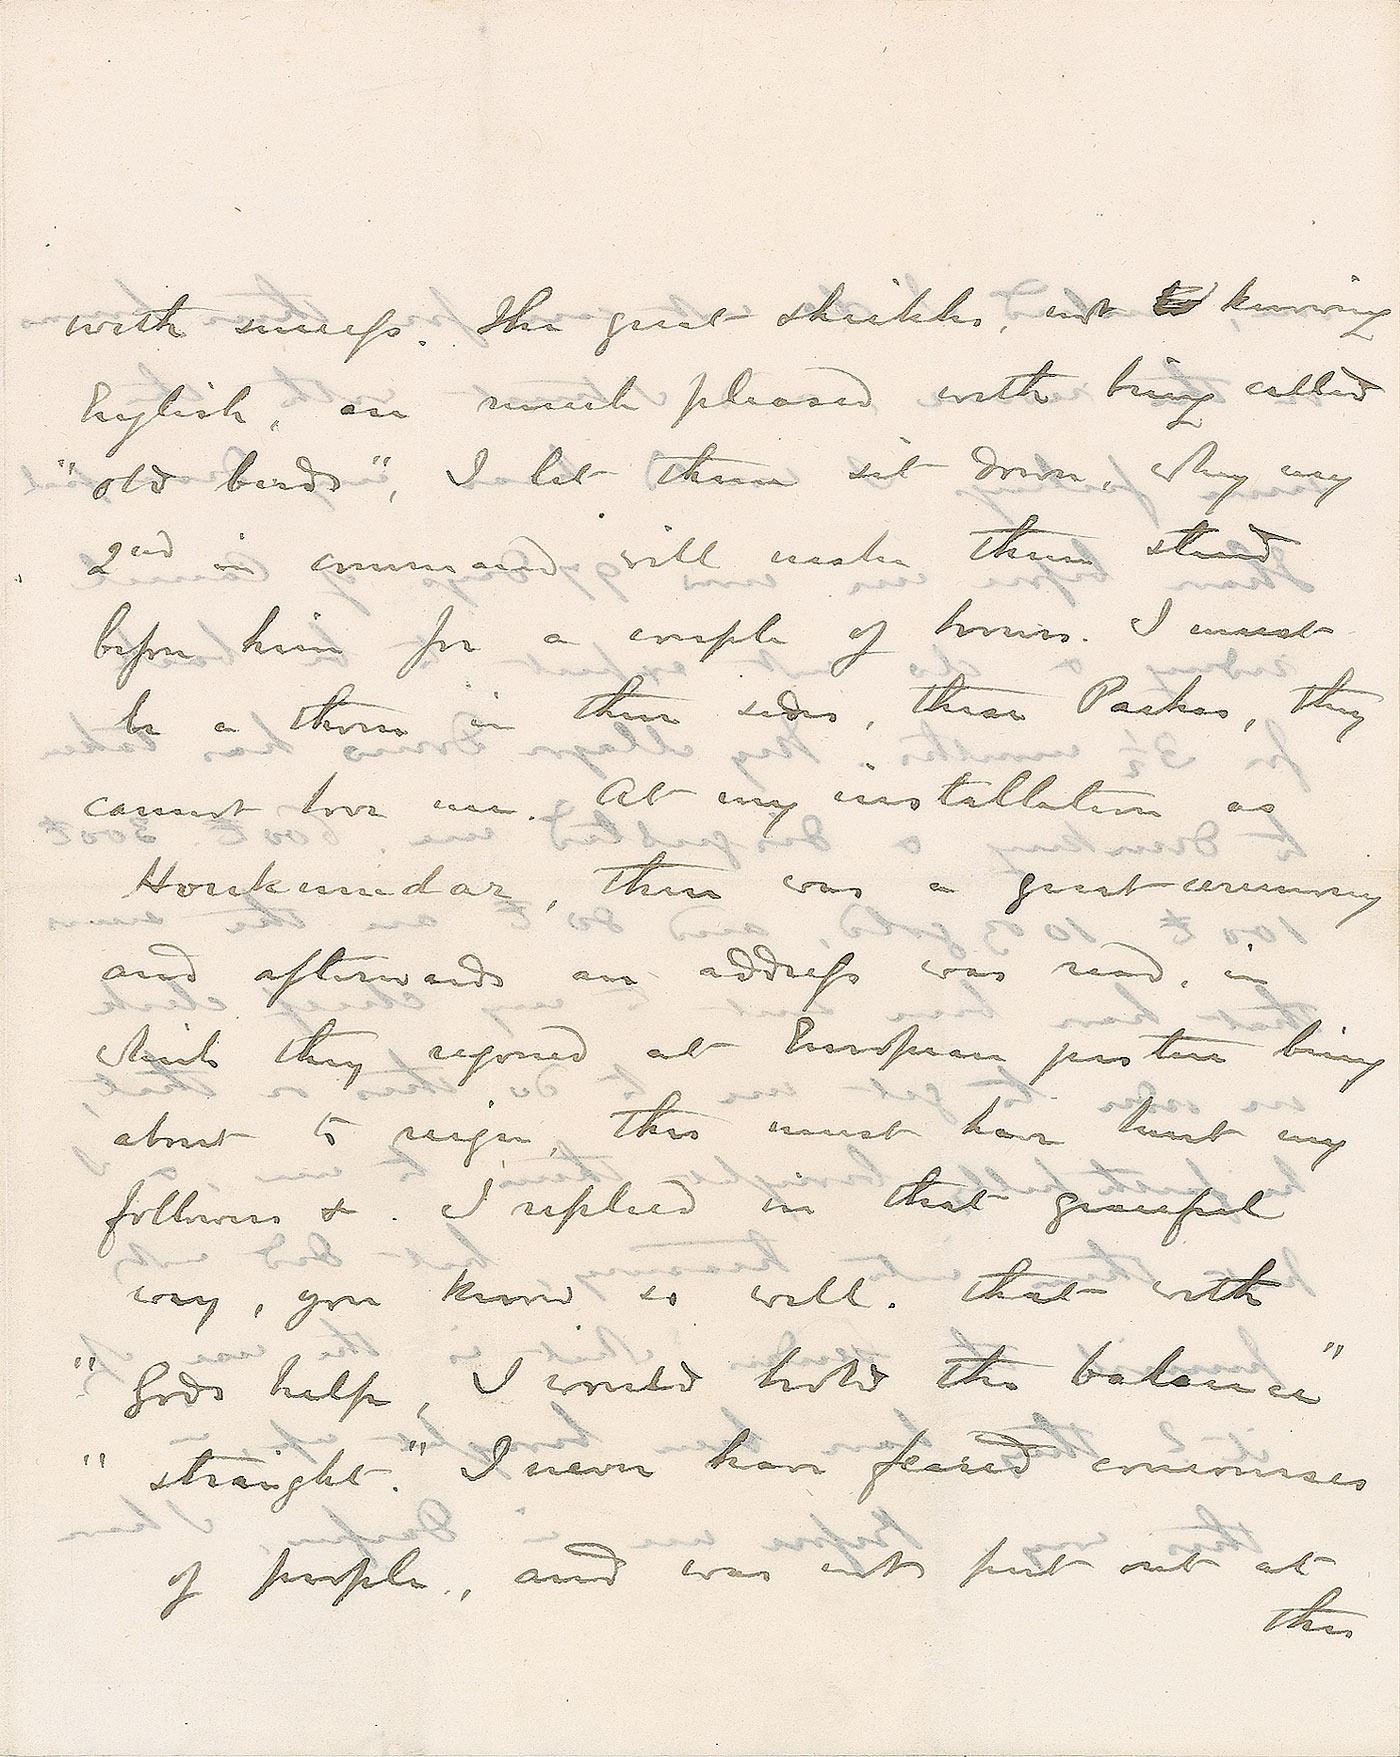 with success. The great sheikhs, not knowing
English, are much pleased with being called
"old birds", I let them sit down, they my
2nd in command will make them stand
before him for a couple of hours. I must
be a thorn in their sides, these Pashas, they
cannot love me. At my installation as
Houkumdar, there was a great ceremony
and afterwards an address was read, in
which they rejoiced at European justice being
about to reign, this must have hurt my
followers &. I replied in that graceful
way, you know so well. that with
" Gods help, I would hold the balance "
" straight." I never have feared concourses
of people, and was not put out at
this